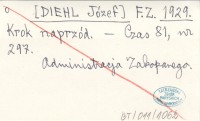 [DIEHL Józef] F.Z. 1929.
Krok naprzód. — Czas 81, nr
297.
Administracja Zakopanego